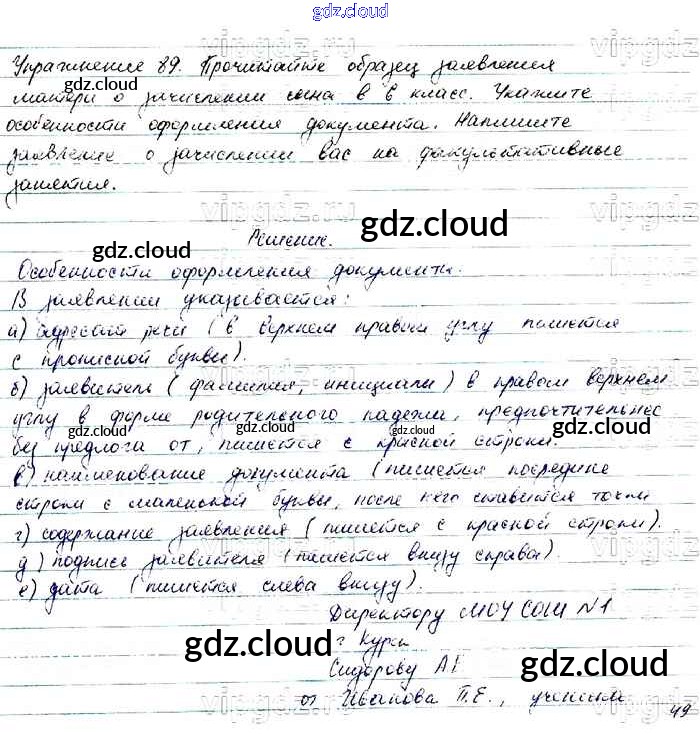 gdz.cloud
Упражнение 89. Прочитайте образец заявления
gdz.cloud
матери о зачислении сына в 6 класс. Укажите
особенности оформления документа. Напишите
заявление о зачислении вас на факультативные
занятия.
vipgdz.ru
Решение.
gdz.cloud
gdz.cloud
Особенности оформления документа.
В заявлении указывается:
а) адресат речи (в верхнем правом углу пишется
с прописной буквы).
gdz.cloud
б) заявитель (фамилия, инициалы) в правом верхнем
углу в форме родительного падежа, предпочтительнее
без предлога от, пишется с красной строки.
gdz.cloud gdz.cloud gdz.cloud
в) наименование документа (пишется посредине
строки с маленькой буквы, после него ставится точка
г) содержание заявления (пишется с красной строки).
д) подпись заявителя (пишется внизу справа).
е) дата (пишется слева внизу).
Директору МОУ СОШ N1
г Курс
gdz.cloud
gdz.cloud
Сидорову А
от Иванова П.Е., ученика
49